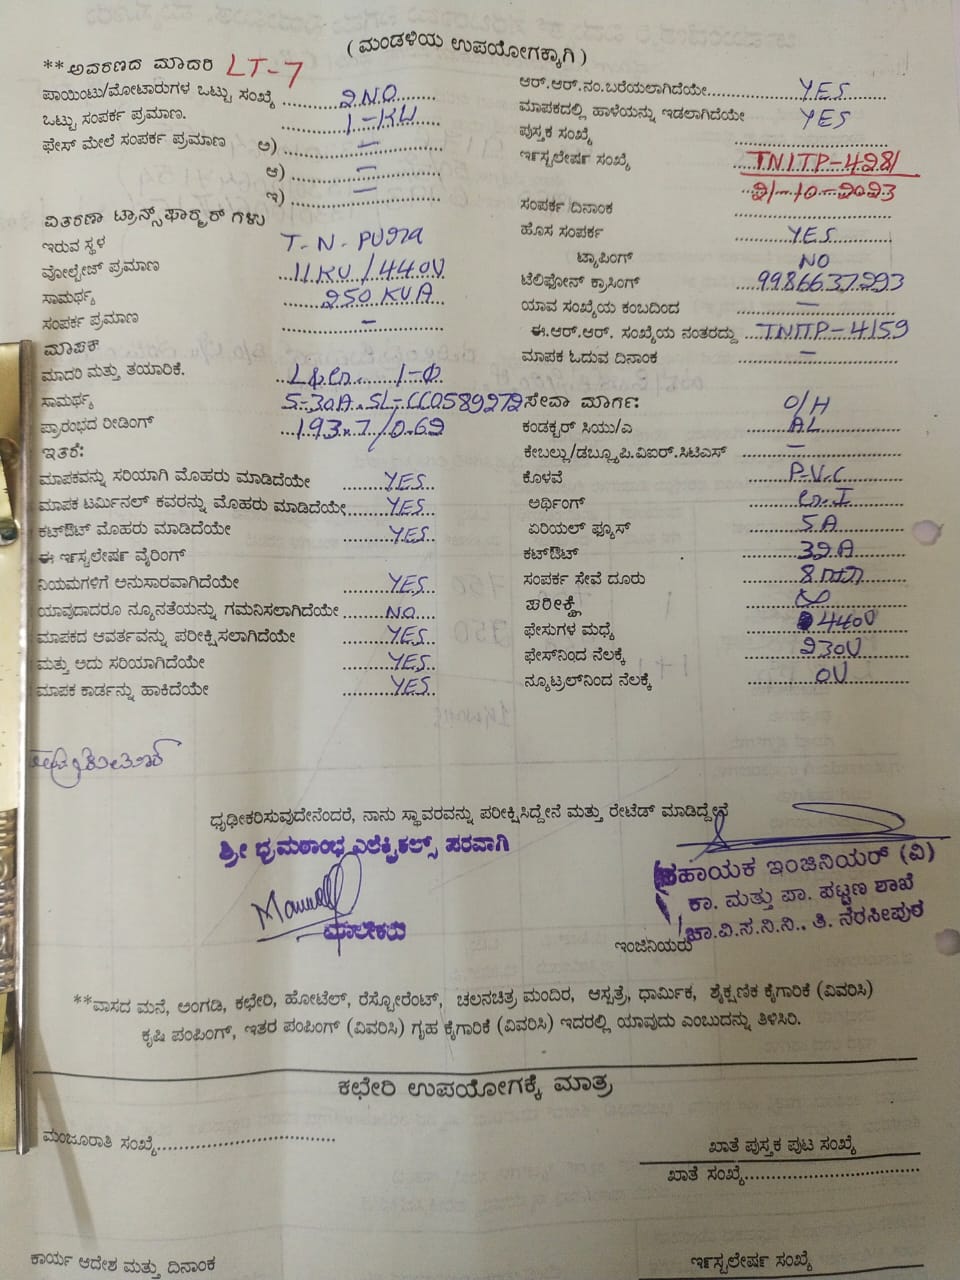 ( ಮಂಡಳಿಯ ಉಪಯೋಗಕ್ಕಾಗಿ )
**ಆವರಣದ ಮಾದರಿ LT-7
ಪಾಯಿಂಟು/ಮೋಟಾರುಗಳ ಒಟ್ಟು ಸಂಖ್ಯೆ 2NO
ಒಟ್ಟು ಸಂಪರ್ಕ ಪ್ರಮಾಣ. 1-KW
ಫೇಸ್ ಮೇಲೆ ಸಂಪರ್ಕ ಪ್ರಮಾಣ ಅ) –
ಆ) –
ಇ) –
ವಿತರಣಾ ಟ್ರಾನ್ಸ್‌ಫಾರ್ಮರ್‌ಗಳು
ಇರುವ ಸ್ಥಳ T-N-PURA
ವೋಲ್ಟೇಜ್ ಪ್ರಮಾಣ 11KV/440V
ಸಾಮರ್ಥ್ಯ 250KVA
ಸಂಪರ್ಕ ಪ್ರಮಾಣ –
ಮಾಪಕ
ಮಾದರಿ ಮತ್ತು ತಯಾರಿಕೆ. 1-Φ
ಸಾಮರ್ಥ್ಯ 5-30A.SL-CC0589272
ಪ್ರಾರಂಭದ ರೀಡಿಂಗ್ 193.7/0.62
ಇತರೆ:
ಮಾಪಕವನ್ನು ಸರಿಯಾಗಿ ಮೊಹರು ಮಾಡಿದೆಯೇ YES
ಮಾಪಕ ಟರ್ಮಿನಲ್ ಕವರನ್ನು ಮೊಹರು ಮಾಡಿದೆಯೇ YES
ಕಟ್‌ಔಟ್ ಮೊಹರು ಮಾಡಿದೆಯೇ YES
ಈ ಇನ್ಸ್ಟಲೇಷನ್ ವೈರಿಂಗ್
ನಿಯಮಗಳಿಗೆ ಅನುಸಾರವಾಗಿದೆಯೇ YES
ಯಾವುದಾದರೂ ನ್ಯೂನತೆಯನ್ನು ಗಮನಿಸಲಾಗಿದೆಯೇ NO
ಮಾಪಕದ ಆವರ್ತವನ್ನು ಪರೀಕ್ಷಿಸಲಾಗಿದೆಯೇ YES
ಮತ್ತು ಅದು ಸರಿಯಾಗಿದೆಯೇ YES
ಮಾಪಕ ಕಾರ್ಡನ್ನು ಹಾಕಿದೆಯೇ YES
ಆರ್.ಆರ್.ನಂ.ಬರೆಯಲಾಗಿದೆಯೇ YES
ಮಾಪಕದಲ್ಲಿ ಹಾಳೆಯನ್ನು ಇಡಲಾಗಿದೆಯೇ YES
ಪುಸ್ತಕ ಸಂಖ್ಯೆ
ಇನ್ಸ್ಟಲೇಷನ್ ಸಂಖ್ಯೆ TNITP-4281
21-10-2023
ಸಂಪರ್ಕ ದಿನಾಂಕ
ಹೊಸ ಸಂಪರ್ಕ YES
ಟ್ಯಾಪಿಂಗ್ NO
ಟೆಲಿಫೋನ್ ಕ್ರಾಸಿಂಗ್ 9986637293
ಯಾವ ಸಂಖ್ಯೆಯ ಕಂಬದಿಂದ –
ಈ.ಆರ್.ಆರ್. ಸಂಖ್ಯೆಯ ನಂತರದ್ದು TNITP-4159
ಮಾಪಕ ಓದುವ ದಿನಾಂಕ –
ಸೇವಾ ಮಾರ್ಗ: O/H
ಕಂಡಕ್ಟರ್ ಸಿಯು/ಎ AL
ಕೇಬಲ್ಲು/ಡಬ್ಲ್ಯೂಪಿ.ವಿಐರ್.ಸಿಟಿಎಸ್ –
ಕೊಳವೆ P.V.C
ಅರ್ಥಿಂಗ್ G.I
ಏರಿಯಲ್ ಫ್ಯೂಸ್ 5A
ಕಟ್‌ಔಟ್ 32A
ಸಂಪರ್ಕ ಸೇವೆ ದೂರು
ಪರೀಕ್ಷೆ
ಫೇಸುಗಳ ಮಧ್ಯೆ 440V
ಫೇಸ್‌ನಿಂದ ನೆಲಕ್ಕೆ 230V
ನ್ಯೂಟ್ರಲ್‌ನಿಂದ ನೆಲಕ್ಕೆ 0V
ಧೃಢೀಕರಿಸುವುದೇನೆಂದರೆ, ನಾನು ಸ್ಥಾವರವನ್ನು ಪರೀಕ್ಷಿಸಿದ್ದೇನೆ ಮತ್ತು ರೇಟೆಡ್ ಮಾಡಿದ್ದೇನೆ
ಶ್ರೀ ಭ್ರಮರಾಂಭ ಎಲೆಕ್ಟ್ರಿಕಲ್ಸ್ ಪರವಾಗಿ
ಮಾಲೀಕರು
ಸಹಾಯಕ ಇಂಜಿನಿಯರ್ (ವಿ)
ಕಾ. ಮತ್ತು ಪಾ. ಪಟ್ಟಣ ಶಾಖೆ
ಚಾ.ವಿ.ಸ.ನಿ.ನಿ., ತಿ. ನರಸೀಪುರ
ಇಂಜಿನಿಯರು
**ವಾಸದ ಮನೆ, ಅಂಗಡಿ, ಕಛೇರಿ, ಹೋಟೆಲ್, ರೆಸ್ಟೋರೆಂಟ್, ಚಲನಚಿತ್ರ ಮಂದಿರ, ಆಸ್ಪತ್ರೆ, ಧಾರ್ಮಿಕ, ಶೈಕ್ಷಣಿಕ ಕೈಗಾರಿಕೆ (ವಿವರಿಸಿ)
ಕೃಷಿ ಪಂಪಿಂಗ್, ಇತರ ಪಂಪಿಂಗ್ (ವಿವರಿಸಿ) ಗೃಹ ಕೈಗಾರಿಕೆ (ವಿವರಿಸಿ) ಇದರಲ್ಲಿ ಯಾವುದು ಎಂಬುದನ್ನು ತಿಳಿಸಿರಿ.
ಕಛೇರಿ ಉಪಯೋಗಕ್ಕೆ ಮಾತ್ರ
ಮಂಜೂರಾತಿ ಸಂಖ್ಯೆ
ಖಾತೆ ಪುಸ್ತಕ ಪುಟ ಸಂಖ್ಯೆ
ಖಾತೆ ಸಂಖ್ಯೆ
ಕಾರ್ಯ ಆದೇಶ ಮತ್ತು ದಿನಾಂಕ
ಇನ್ಸ್ಟಲೇಷನ್ ಸಂಖ್ಯೆ